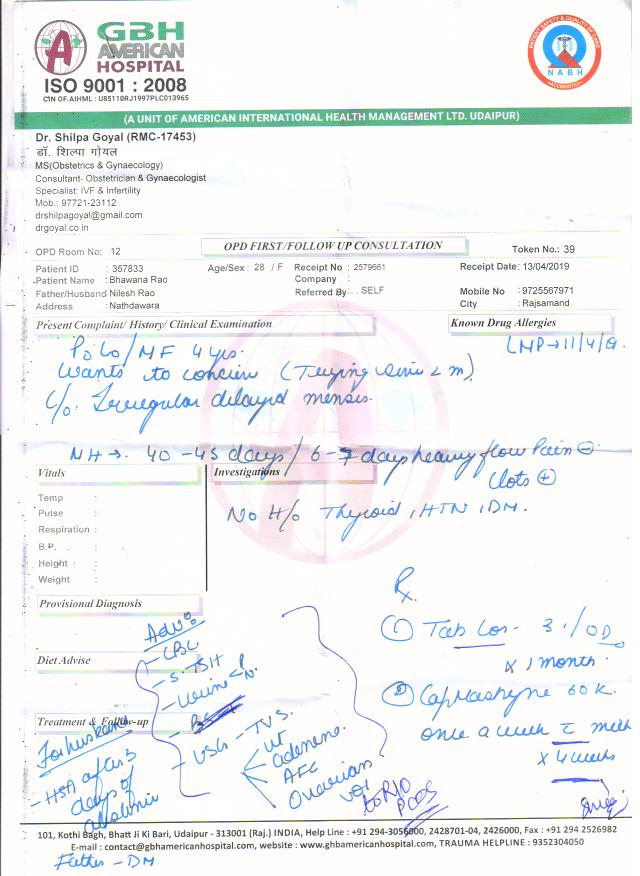 GBH
AMERICAN
HOSPITAL
ISO 9001 : 2008
CIN OF AIHML : U85110RJ1997PLC013965
PATIENT SAFETY & QUALITY OF CARE
NABH
ACCREDITED
(A UNIT OF AMERICAN INTERNATIONAL HEALTH MANAGEMENT LTD. UDAIPUR)
Dr. Shilpa Goyal (RMC-17453)
डॉ. शिल्पा गोयल
MS(Obstetrics & Gynaecology)
Consultant- Obstetrician & Gynaecologist
Specialist: IVF & Infertility
Mob.: 97721-23112
drshilpagoyal@gmail.com
drgoyal.co.in
OPD Room No: 12
OPD FIRST/FOLLOW UP CONSULTATION
Token No.: 39
Patient ID : 357833 Age/Sex : 28 / F Receipt No : 2579661 Receipt Date: 13/04/2019
Patient Name : Bhawana Rao Company :
Father/Husband Nilesh Rao Referred By : . SELF Mobile No : 9725567971
Address : Nathdawara City : Rajsamand
Present Complaint/ History/ Clinical Examination Known Drug Allergies
P0L0/MF 4 yrs. LMP→11/4/19.
Wants to concieve (Trying since 2 m)
C/o. Irregular delayed menses.
MH→ 40-45 days/6-7 days heavy flow Pain ⊖
Clots ⊕
Vitals Investigations
No H/o Thyroid, HTN, DM.
Temp :
Pulse :
Respiration :
B.P. :
Height :
Weight :
Provisional Diagnosis
Rx
① Tab 3 /OD
x 1 month.
② 60K
once a week c milk
x 4 weeks
Adv:
- CBC
Diet Advise
- S.TSH
- Urine
Treatment & Follow-up
- USG - TVS.
ut
adenexa
AFC
Ovarian
vol
to R/O
PCOS
For husband
- HSA after 3
days of
101, Kothi Bagh, Bhatt Ji Ki Bari, Udaipur - 313001 (Raj.) INDIA, Help Line : +91 294-3056000, 2428701-04, 2426000, Fax : +91 294 2526982
E-mail : contact@gbhamericanhospital.com, website : www.gbhamericanhospital.com, TRAUMA HELPLINE : 9352304050
Father - DM